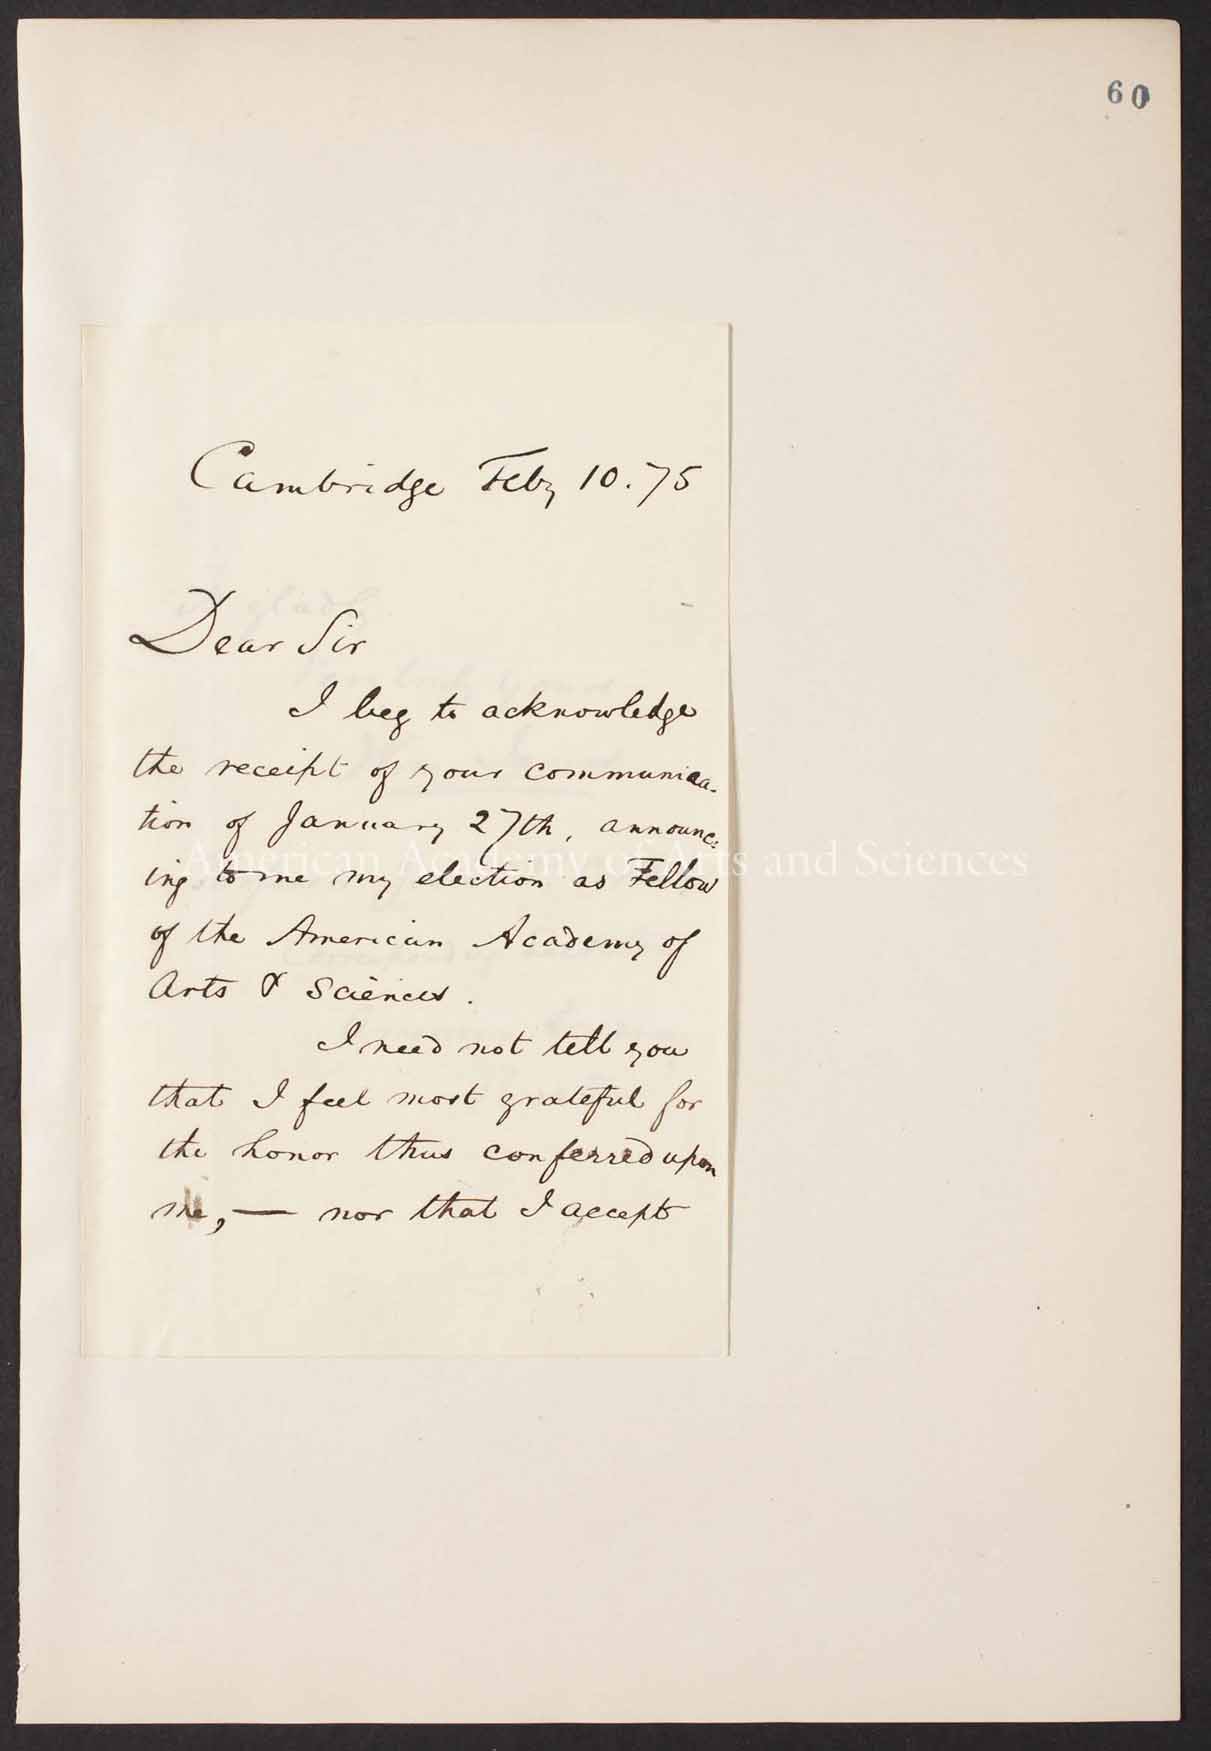 60
Cambridge Feby 10. 75
Dear Sir
I beg to acknowledge
the receipt of your communica-
tion of January 27th, announc-
American Academy of Arts and Sciences
ing to me my election as Fellow
of the American Academy of
Arts & Sciences.
I need not tell you
that I feel most grateful for
the honor thus conferred upon
me, — nor that I accept